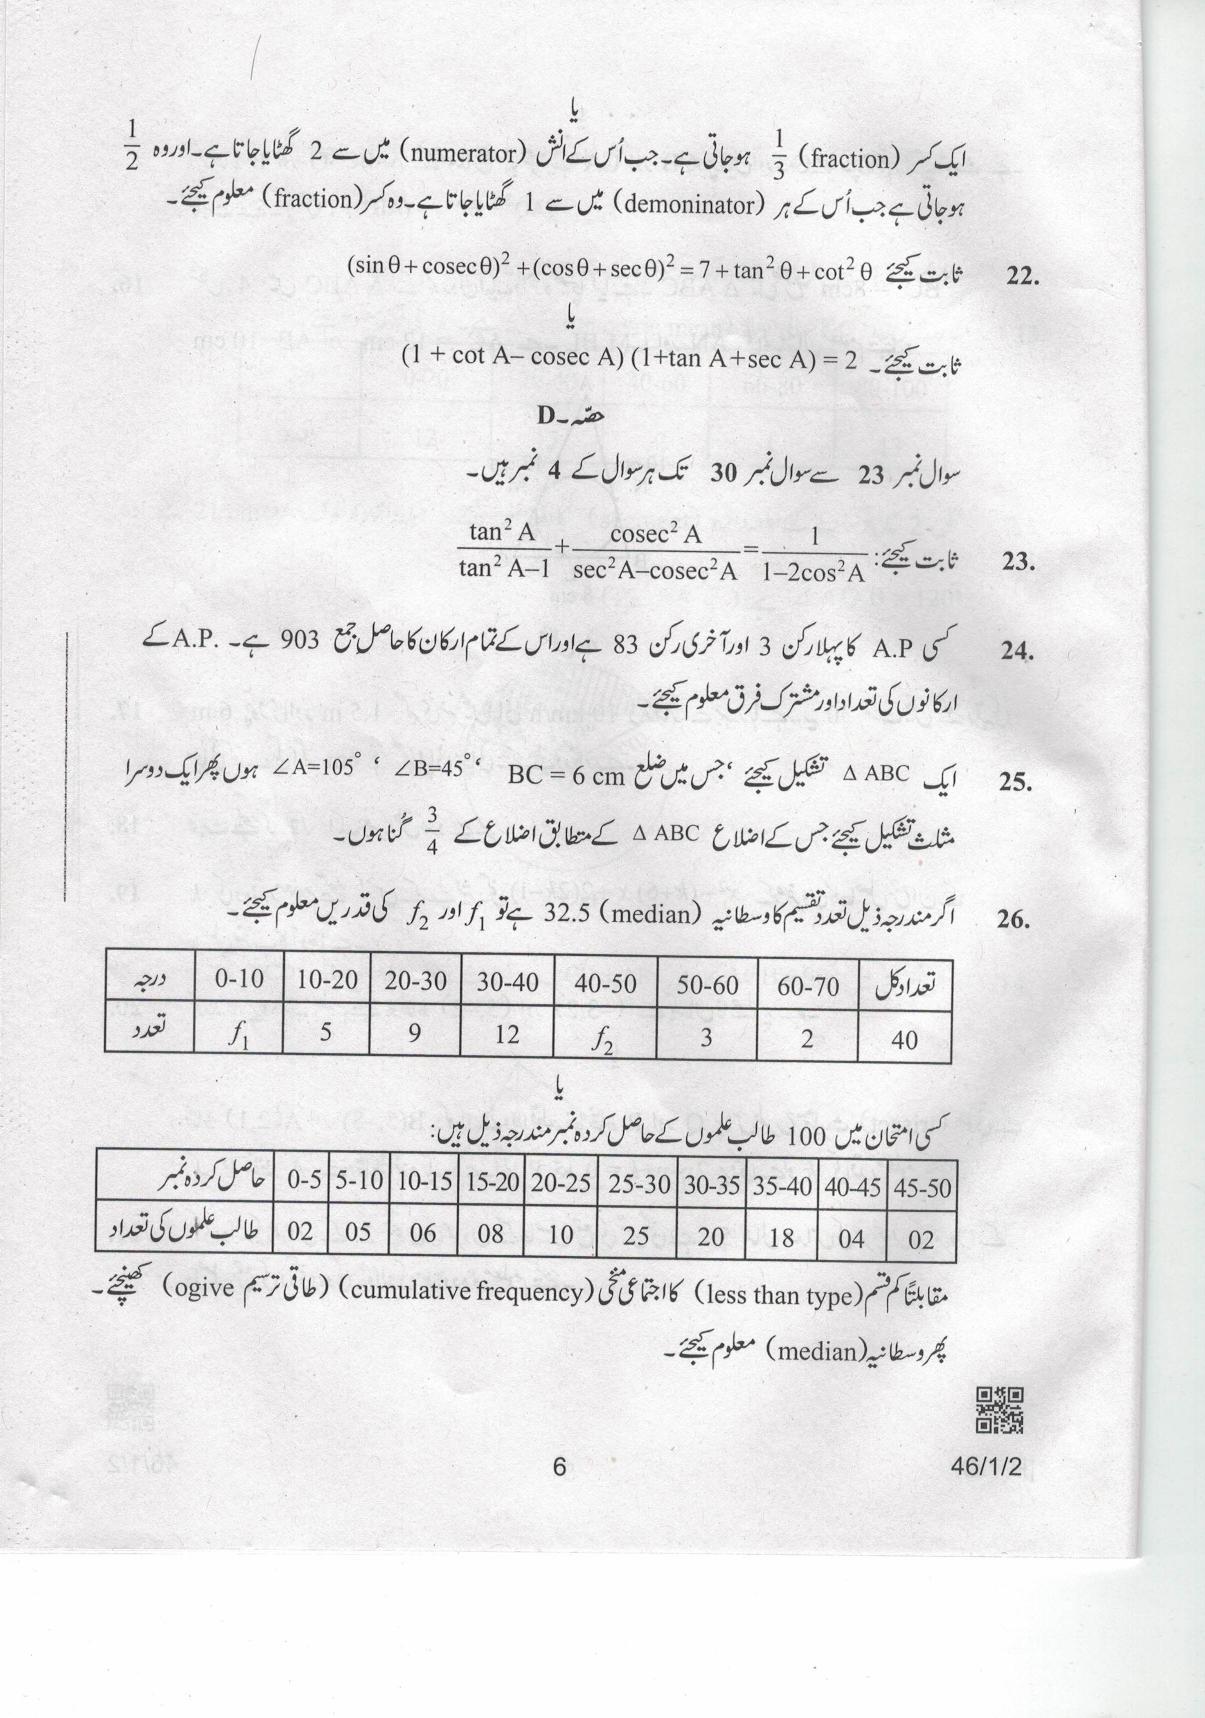 یا
ایک کسر (fraction) 1/3 ہوجاتی ہے۔ جب اُس کے انش (numerator) میں سے 2 گھٹایا جاتا ہے۔ اور وہ 1/2
ہوجاتی ہے جب اُس کے ہر (demoninator) میں سے 1 گھٹایا جاتا ہے۔ وہ کسر (fraction) معلوم کیجئے۔
22. ثابت کیجئے (sin θ + cosec θ)² + (cos θ + sec θ)² = 7 + tan² θ + cot² θ
یا
ثابت کیجئے۔ (1 + cot A– cosec A) (1+tan A+sec A) = 2
حصّہ۔D
سوال نمبر 23 سے سوال نمبر 30 تک ہر سوال کے 4 نمبر ہیں۔
23. ثابت کیجئے: tan² A/(tan² A–1) + cosec² A/(sec² A–cosec² A) = 1/(1–2cos² A)
24. کسی A.P کا پہلا رکن 3 اور آخری رکن 83 ہے اور اس کے تمام ارکان کا حاصل جمع 903 ہے۔ A.P. کے
ارکانوں کی تعداد اور مشترک فرق معلوم کیجئے۔
25. ایک Δ ABC تشکیل کیجئے، جس میں ضلع BC = 6 cm، ∠B=45°، ∠A=105° ہوں پھر ایک دوسرا
مثلث تشکیل کیجئے جس کے اضلاع Δ ABC کے مطابق اضلاع کے 3/4 گُنا ہوں۔
26. اگر مندرجہ ذیل تعدد تقسیم کا وسطانیہ (median) 32.5 ہے تو f₁ اور f₂ کی قدریں معلوم کیجئے۔
درجہ 0-10 10-20 20-30 30-40 40-50 50-60 60-70 تعداد کل
تعدد f₁ 5 9 12 f₂ 3 2 40
یا
کسی امتحان میں 100 طالب علموں کے حاصل کردہ نمبر مندرجہ ذیل ہیں:
حاصل کردہ نمبر 0-5 5-10 10-15 15-20 20-25 25-30 30-35 35-40 40-45 45-50
طالب علموں کی تعداد 02 05 06 08 10 25 20 18 04 02
مقابلتاً کم قسم (less than type) کا اجتماعی منحنی (cumulative frequency) (طاقی ترسیم ogive) کھینچئے۔
پھر وسطانیہ (median) معلوم کیجئے۔
6
46/1/2